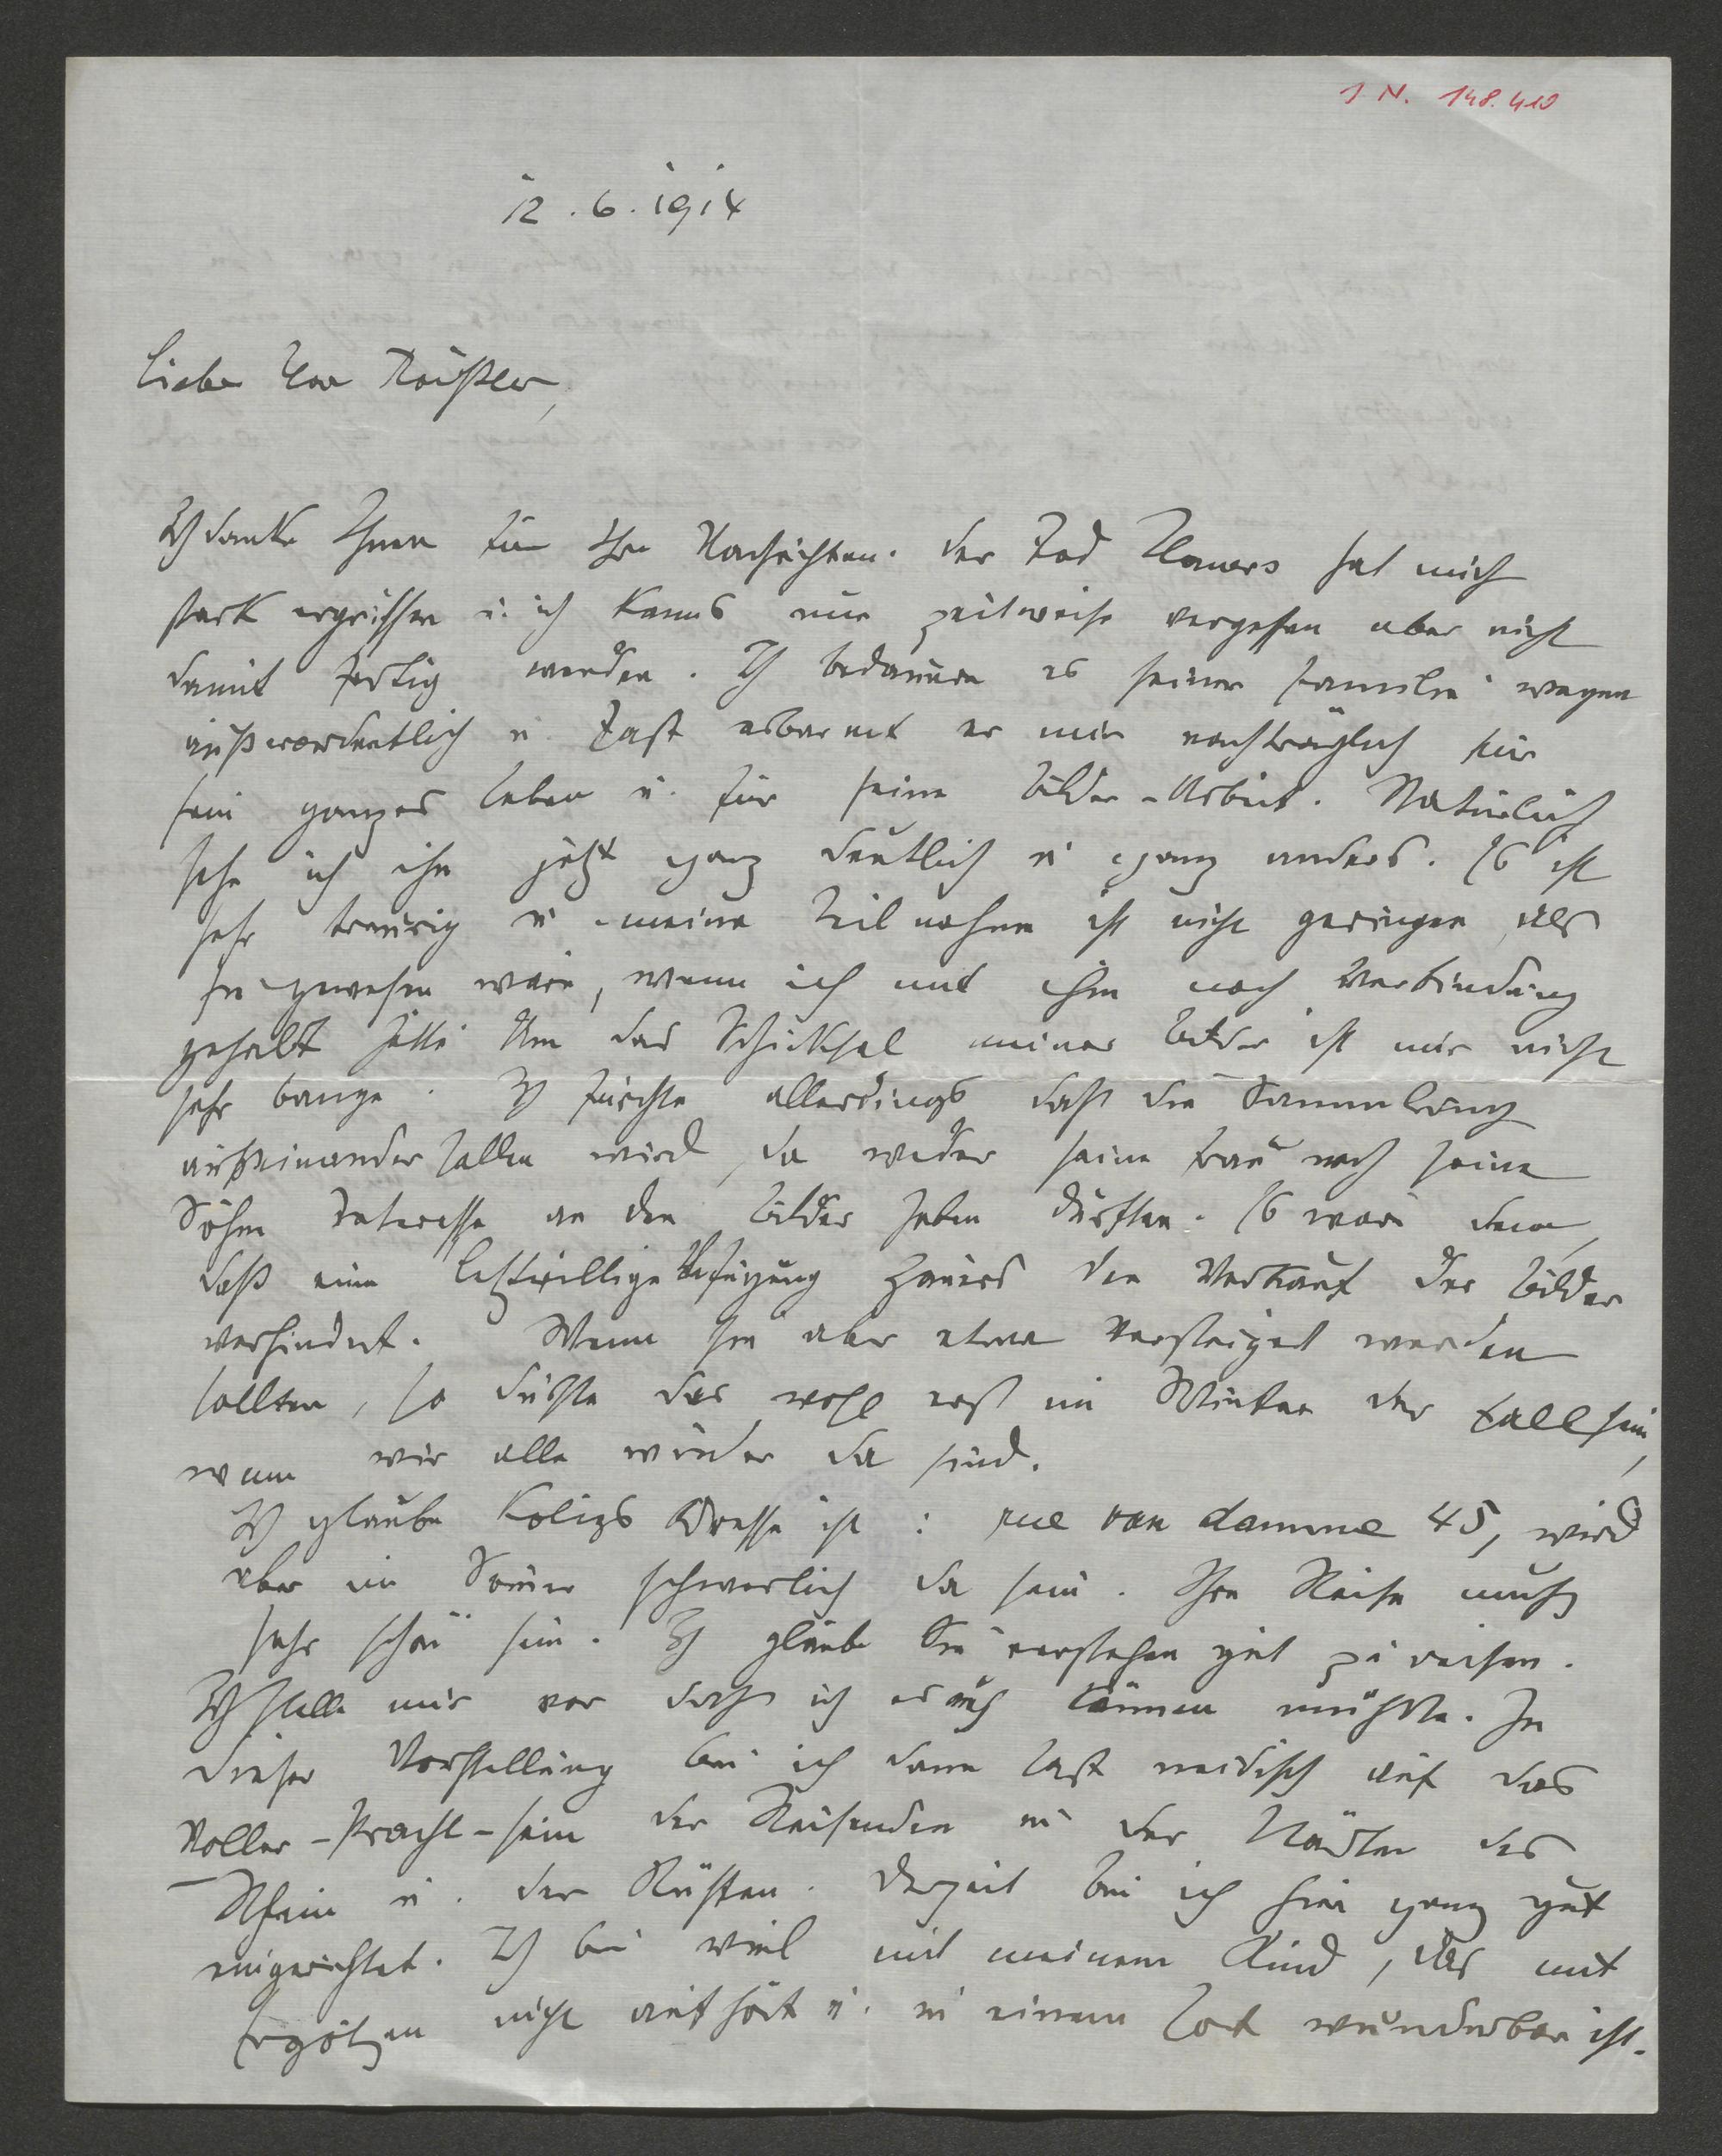 I. N. 148.410
12.6.1914
Lieber Herr Röußler,
Ich danke Ihnen für Ihre Nachrichten. Der Tod Hauers hat mich
stark ergriffen u. ich kanns nur zeitweise vergessen aber nicht
damit fertig werden. Ich bedauere es seiner Familie wegen
außerordentlich u. fast erbarmt er mir nachträglich für
sein ganzes Leben u. für seine Bilder-Arbeit. Natürlich
sehe ich ihn jetzt ganz deutlich u ganz anders. Es ist
sehr traurig u meine Teilnahme ist nicht geringer als
sie gewesen wäre, wenn ich mit ihm noch Verbindung
gehabt hätte Um das Schicksal meiner Bilder ist mir nicht
sehr bange. Ich fürchte allerdings daß die Sammlung
auseinander fallen wird, da weder seine Frau noch seine
Söhne Interesse an den Bilder haben dürften. Es wäre denn,
daß eine letztwillige Verfügung Hauers den Verkauf der Bilder
verhindert. Wenn sie aber etwa versteigert werden
sollten, so dürfte das wohl erst im Winter der Fall sein,
wenn wir alle wieder da sind.
Ich glaube Koligs Adresse ist: rue van damme 45, wird
aber im Somer schwerlich da sein. Ihre Reise muß
sehr schön sein. Ich glaube Sie verstehen gut zu reisen.
Ich stelle mir vor daß ich es auch können müßte. In
dieser Vorstellung bin ich dann fast neidisch auf das
Voller-Pracht-sein der Reisenden in der Städten des
Rhein u. der Küsten. Derzeit bin ich hier ganz gut
eingerichtet. Ich bin viel mit meinem Kind, das mit
Ergötzen nicht aufhört u. in einem fort wunderbar ist.